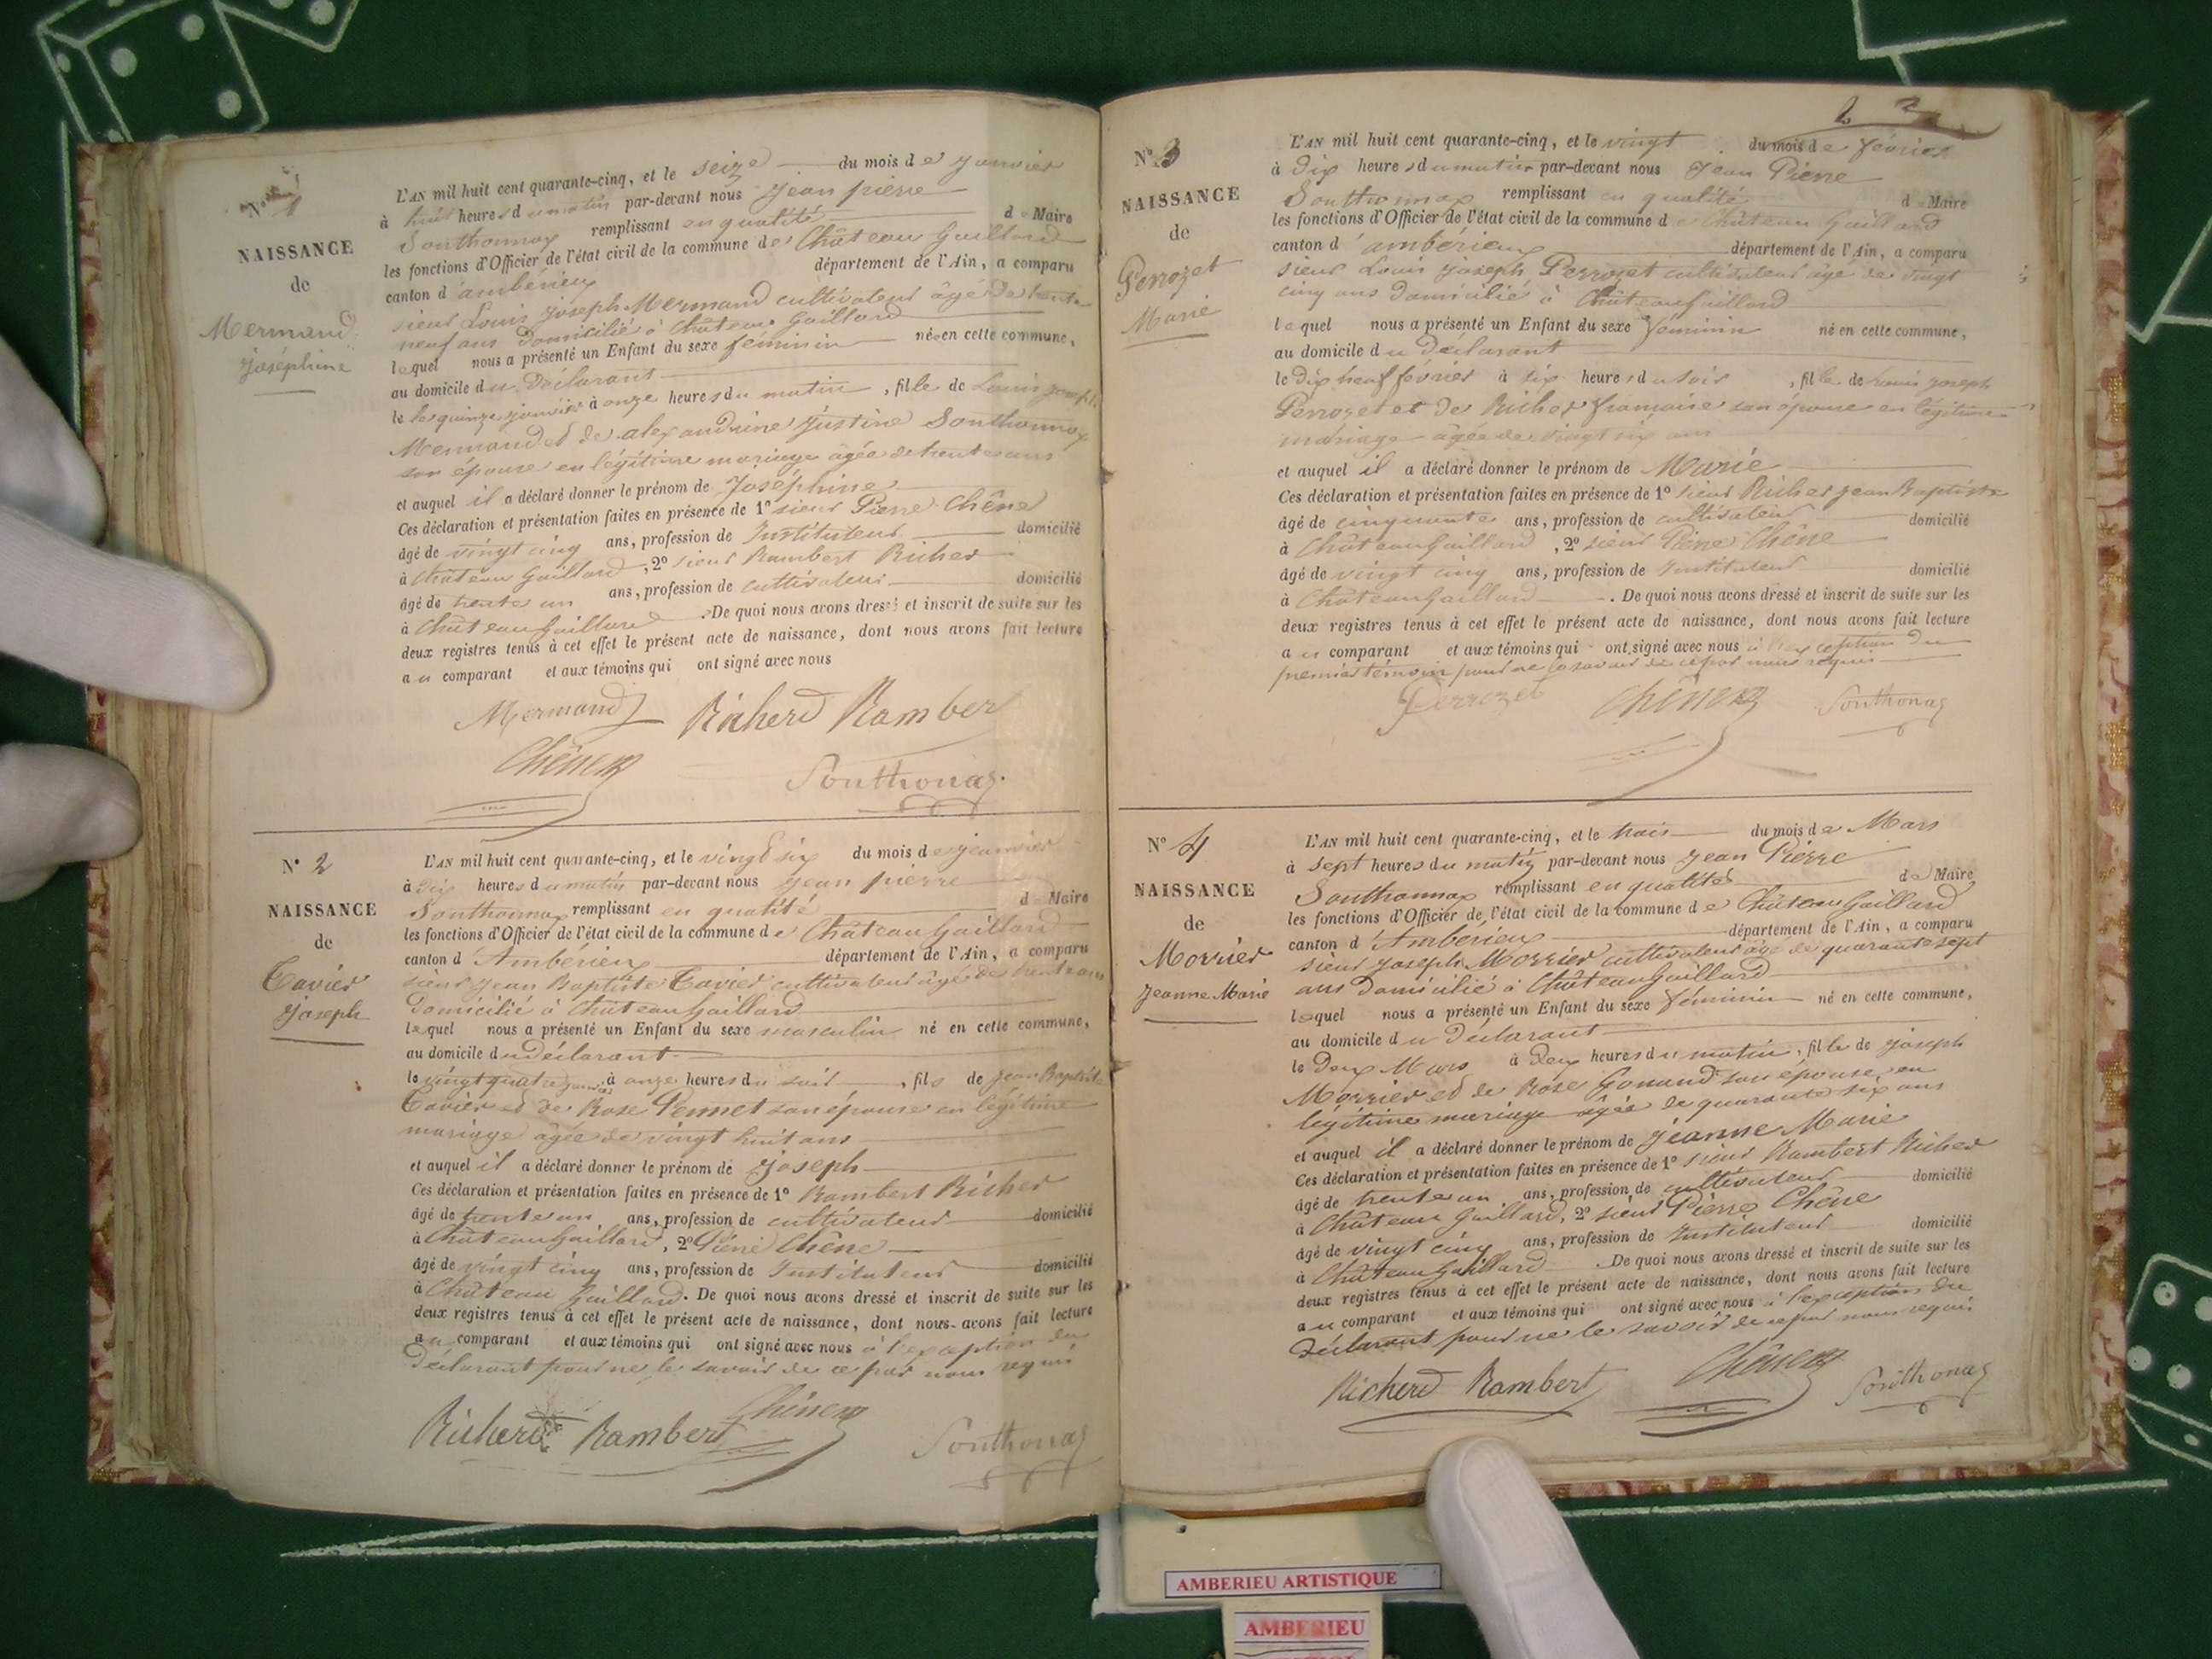 N° 1
NAISSANCE
de
Mermand
Joséphine
L'AN mil huit cent quarante-cinq, et le seize du mois de janvier
à huit heures du matin par-devant nous Jean pierre
Southonnax remplissant en qualité de Maire
les fonctions d'Officier de l'état civil de la commune de Château Gaillard
canton d'ambérieux département de l'Ain, a comparu
sieur Louis joseph Mermand cultivateur âgé de trente
neuf ans domicilié à Château Gaillard
lequel nous a présenté un Enfant du sexe féminin née en cette commune,
au domicile du Déclarant
le le quinze janvier à onze heures du matin, fille de Louis joseph
Mermand et de alexandrine justine Southonnax
son épouse en légitime mariage âgée de trente ans
et auquel il a déclaré donner le prénom de Joséphine
Ces déclaration et présentation faites en présence de 1° sieur Pierre Chêne
âgé de vingt cinq ans, profession de Instituteur domicilié
à Château Gaillard, 2° sieur Rambert Richer
âgé de trente un ans, profession de cultivateur domicilié
à Château Gaillard. De quoi nous avons dressé et inscrit de suite sur les
deux registres tenus à cet effet le présent acte de naissance, dont nous avons fait lecture
au comparant et aux témoins qui ont signé avec nous
Mermand Richerd Ramber
Chêne Southonax
N° 2
NAISSANCE
de
Tavier
joseph
L'AN mil huit cent quarante-cinq, et le vingt six du mois de janvier
à dix heures du matin par-devant nous Jean pierre
Southonnax remplissant en qualité de Maire
les fonctions d'Officier de l'état civil de la commune de Château Gaillard
canton d'Ambérieux département de l'Ain, a comparu
sieur jean Baptiste Tavier cultivateur âgé de trente ans
domicilié à Château Gaillard
lequel nous a présenté un Enfant du sexe masculin né en cette commune,
au domicile du déclarant
le vingt quatre janvier à onze heures du soir, fils de jean Baptiste
Tavier et de Rose Pennet son épouse en légitime
mariage âgée de vingt huit ans
et auquel il a déclaré donner le prénom de joseph
Ces déclaration et présentation faites en présence de 1° Rambert Richer
âgé de trente un ans, profession de cultivateur domicilié
à Château Gaillard, 2° Pierre Chêne
âgé de vingt cinq ans, profession de Instituteur domicilié
à Château Gaillard. De quoi nous avons dressé et inscrit de suite sur les
deux registres tenus à cet effet le présent acte de naissance, dont nous avons fait lecture
au comparant et aux témoins qui ont signé avec nous à l'exception du
déclarant pour ne le savoir de ce par nous requis
Richerd Rambert Chêne Southonax
2
N° 3
NAISSANCE
de
Perrozet
Marie
L'AN mil huit cent quarante-cinq, et le vingt du mois de février
à dix heures du matin par-devant nous Jean Pierre
Southonnax remplissant en qualité de Maire
les fonctions d'Officier de l'état civil de la commune de Château Gaillard
canton d'ambérieux département de l'Ain, a comparu
sieur Louis joseph Perrozet cultivateur âgé de vingt
cinq ans domicilié à Château Gaillard
lequel nous a présenté un Enfant du sexe féminin né en cette commune,
au domicile du déclarant
le dix neuf février à six heures du soir, fille de Louis joseph
Perrozet et de Richer son épouse en légitime
mariage âgée de vingt six ans
et auquel il a déclaré donner le prénom de Marie
Ces déclaration et présentation faites en présence de 1° sieur Richer jean Baptiste
âgé de cinquante ans, profession de cultivateur domicilié
à Château Gaillard, 2° sieur Pierre Chêne
âgé de vingt cinq ans, profession de Instituteur domicilié
à Château Gaillard. De quoi nous avons dressé et inscrit de suite sur les
deux registres tenus à cet effet le présent acte de naissance, dont nous avons fait lecture
au comparant et aux témoins qui ont signé avec nous à l'exception du
premier témoin pour ne le savoir de ce par nous requis
Perrozet Chêne Southonax
N° 4
NAISSANCE
de
Morrier
Jeanne Marie
L'AN mil huit cent quarante-cinq, et le trois du mois de Mars
à sept heures du matin par-devant nous Jean Pierre
Southonnax remplissant en qualité de Maire
les fonctions d'Officier de l'état civil de la commune de Château Gaillard
canton d'Ambérieux département de l'Ain, a comparu
sieur joseph Morrier cultivateur âgé de quarante sept
ans domicilié à Château Gaillard
lequel nous a présenté un Enfant du sexe féminin né en cette commune,
au domicile du Déclarant
le Deux Mars à Deux heures du matin, fille de joseph
Morrier et de Rose Gonand son épouse en
légitime mariage âgée de quarante six ans
et auquel il a déclaré donner le prénom de jeanne Marie
Ces déclaration et présentation faites en présence de 1° sieur Rambert Richer
âgé de trente un ans, profession de cultivateur domicilié
à Château Gaillard, 2° sieur Pierre Chêne
âgé de vingt cinq ans, profession de Instituteur domicilié
à Château Gaillard. De quoi nous avons dressé et inscrit de suite sur les
deux registres tenus à cet effet le présent acte de naissance, dont nous avons fait lecture
au comparant et aux témoins qui ont signé avec nous à l'exception du
Déclarant pour ne le savoir de ce par nous requis
Richerd Rambert Chêne Southonax
AMBERIEU ARTISTIQUE
AMBERIEU